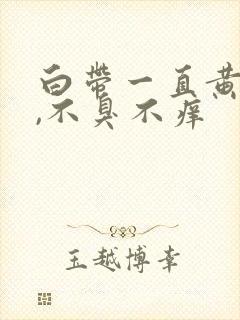 白带一直黄
,不臭不痒
王越博幸